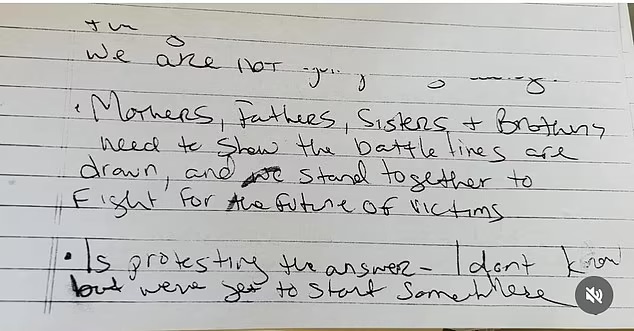 We are not
• Mothers, Fathers, Sisters + Brothers
need to show the battle lines are
drawn, and we stand together to
Fight for the future of victims
• Is protesting the answer - I dont know
but we've got to start somewhere